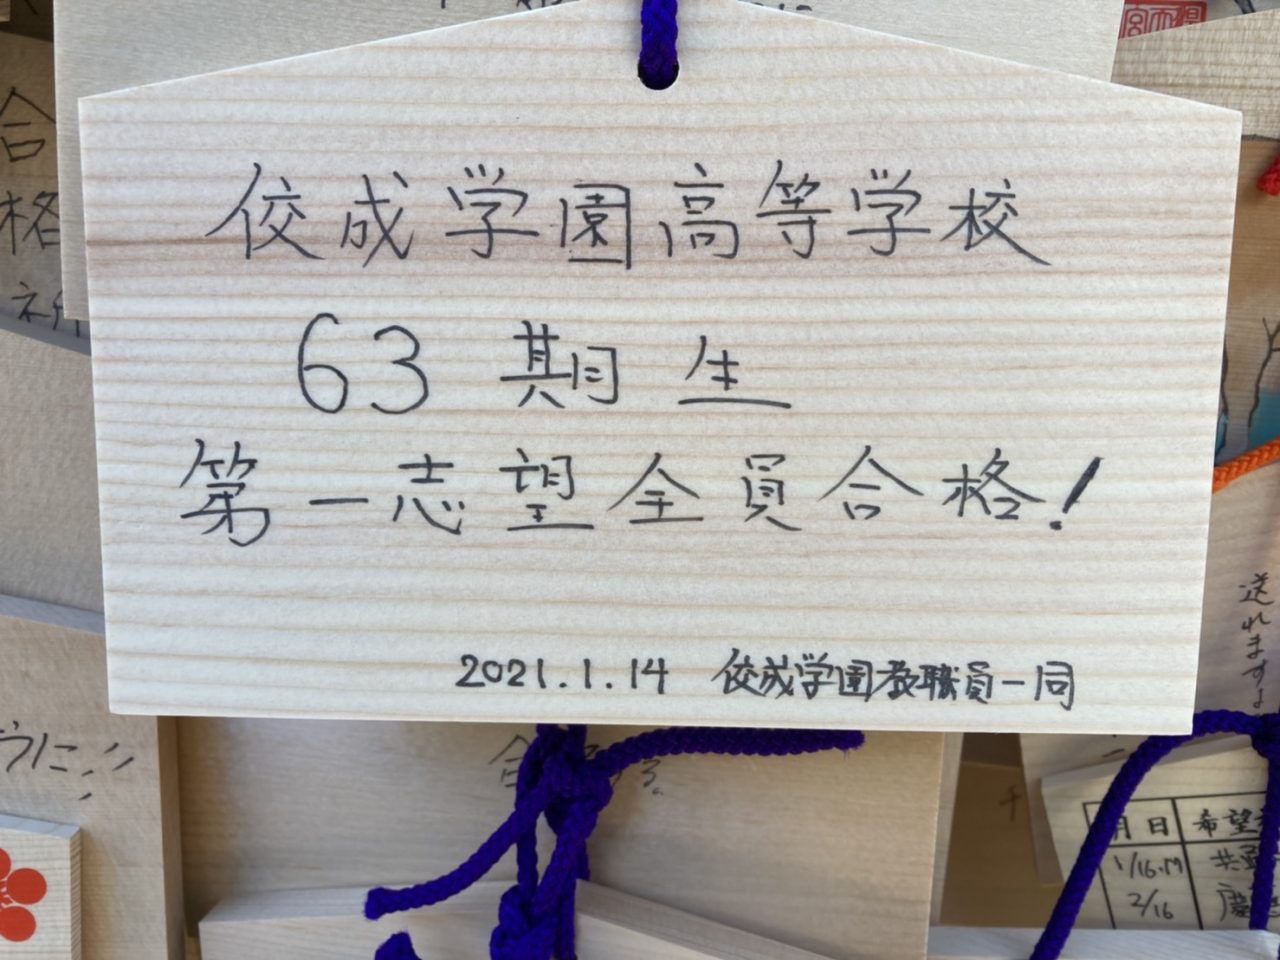 佼成学園高等学校
63期生
第一志望全員合格!
2021.1.14 佼成学園教職員一同
合格
うに
送れますよ
月日 希望
1/16.17
2/16